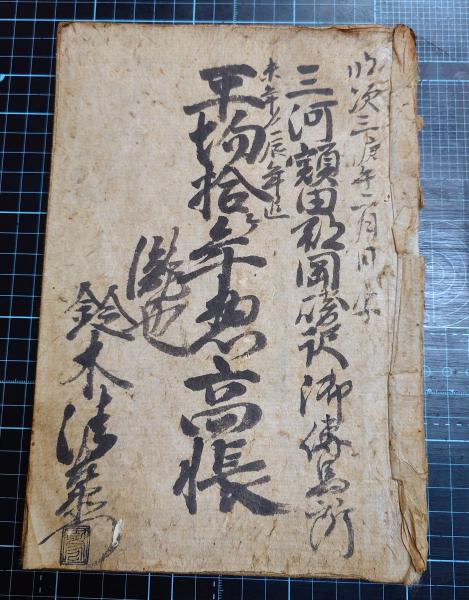 明治三庚午二月日
三河額田郡岡崎沢御伝馬所
未年ゟ辰年迄
平均拾ケ年惣高帳
鈴木清兵衛